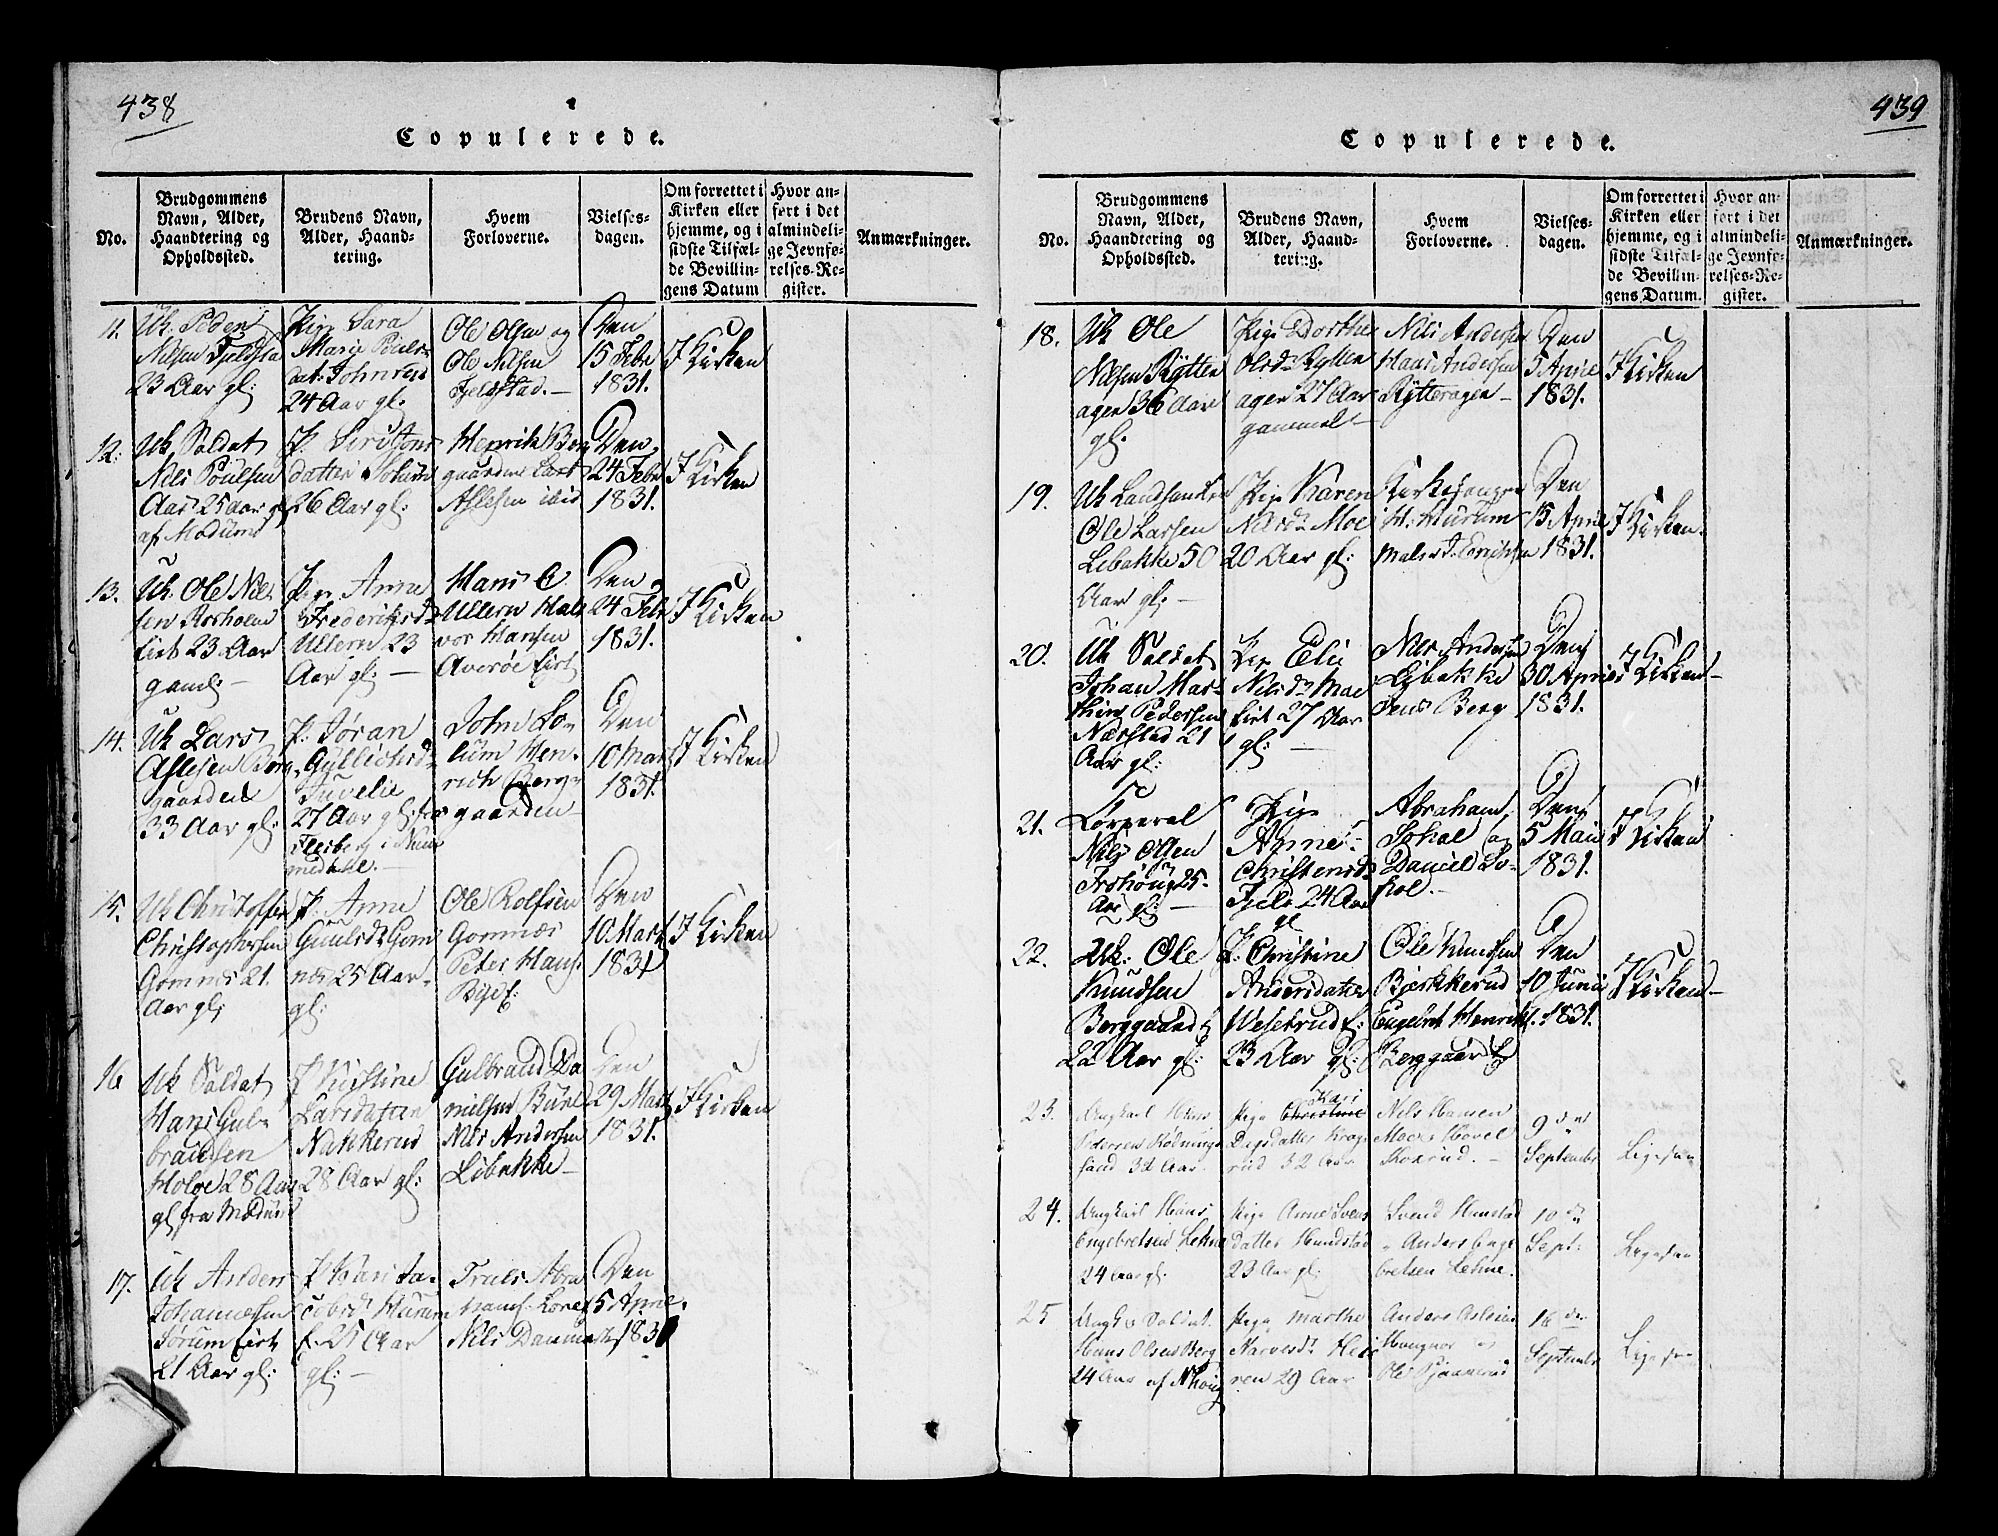 438
Copulerede.
No.
Brudgommens
Navn, Alder,
Haandtering og
Opholdssted.
Brudens Navn,
Alder, Haand-
tering.
Hvem
Forloverne.
Vielses-
dagen.
Om forrettet i
Kirken eller
hjemme, og i
sidste Tilfæl-
de Bevillin-
gens Datum
Hvor an-
ført i det
almindeli-
ge Jevnfø-
relses-Re-
gister.
Anmærkninger.
11.
Uk: Peder
Nilsen Fjeldsta
23 Aar gl:
Pige Sara
Marie Pouls-
dat:
24 Aar gl.
Ole Olsen og
Ole Nilsen
Fjeldstad.—
Den
15 Febr
1831.
I Kirken
12.
Uk Soldat
Nils Poulsen
Aas 25 aar gl
af Modum
P.
datter
26 Aar gl:
Henrik Berg
gaarden Lars
Aslesen ibid
Den
24 Febr
1831.
I Kirken
13.
Uk. Ole Nil-
sen
Eie 23 Aar
gaml.—
Pige Anne
Frederiksd
Ullern 23
Aar gl: —
Hans O.
Ullern Hal-
vor Hansen
Averøe
Den
24 Feb
1831.
I Kirken
14.
Uk Lars
Aslesen Berg-
gaarden
33 Aar gl:
P. Jøran
Gullichsd
Juvelie
27 Aar gl: fra
Flesberg i Num
medahl.—
John So-
lum Hen-
rich Berg-
gaarden
Den
10 Mars
1831.
I Kirken
15.
Uk Christoffer
Christophersen
Gomnes 21.
Aar gl;
P. Anne
Guulsd: Gom
nes 25 Aar.
gl:
Ole Rolfsen
Gomnæs
Peter Hans
Den
10 Mart
1831
I Kirken
16
Uk Soldat
Hans Gul-
brandsen
Holoe 28 Aar
gl fra Modum
P Kirstine
Larsdatter
Nakkerud
28 Aar gl:
Gulbrand Da
nielsen
Nils Andersen
Libakke—
Den
29 Mart
1831.
I Kirken
17.
Uk Anders
Johannesen
Sørum
21 Aar gl:
P Kari Ja-
cobsd Hurum
25 Aar
gl: —
Truls Abra
hams.
Nils Danmark
Den
5 April
1831
439
Copulerede.
No.
Brudgommens
Navn, Alder,
Haandtering og
Opholdssted.
Brudens Navn,
Alder, Haand-
tering.
Hvem
Forloverne.
Vielses-
dagen.
Om forrettet i
Kirken eller
hjemme, og i
sidste Tilfæl-
de Bevillin-
gens Datum.
Hvor an-
ført i det
almindeli-
ge Jevnfø-
relses-Re-
gister.
Anmærkninger.
18.
Uk Ole
Nilsen Rytter
agen 36 Aar
gl.
Pige Dorthe
Olsd: Rytter
agen 27 Aar
gammel—
Nils Andersen
Hans Andersen
Rytteragen—
Den
5 April
1831.
I Kirken
19.
Uk
Ole Larsen
Libakke 50
Aar gl: —
Pige Karen
Nilsd: Moe
20 Aar gl:
Kirkesanger
H: Hurum
Maler J. Erichsen
Den
15 April
1831.
I Kirken.
20.
Uk Soldat
Johan Mar-
thin Pedersen
Nærstad 21
Aar gl:
Pige Elie
Nilsd: Moe
27 Aar
gl: —
Nils Andersen
Libakke
Jens Berg
Den
30 April
1831.
I Kirken—
21.
Corporal
Nils Olsen
Frøhoug 25
Aar gl: —
Pige
Anne
Christensd:
Fjeld 24 Aar
gl
Abraham
Sokol og
Daniel So-
kol.—
Den
5 Mai
1831.
I Kirken
22.
Uk. Ole
Knudsen
Berggaard
22 Aar gl:
P. Christine
Andersdatter
Wesetrud
23 Aar gl:
Ole Knudsen
Bjerkkerud
Engebret Henriks.
Berggaard
Den
10 Junii
1831.
I Kirken—
23.
Ungkarl Hans
Pedersen Rødning-
sand 32 Aar.
Pige Christine Kari
Dagsdatter Krog-
rud 32 Aar
Nils Hansen
Moe
9 de
September
Ligesaa
24.
Ungkarl Hans
Engebretsen Lehne
24 Aar gl.
Pige Anne Svens
datter Hunstad
23 Aar gl:
Svend Hunstad
Anders Enge
bretsen Lehne.
10 de
Sept:
Ligesaa
25
Ungk: Soldat
Hans Olsen Berg
24 Aar af Nhoug
Pige Marthe
ren 29 Aar
Anders
16 de
September
Ligesaa